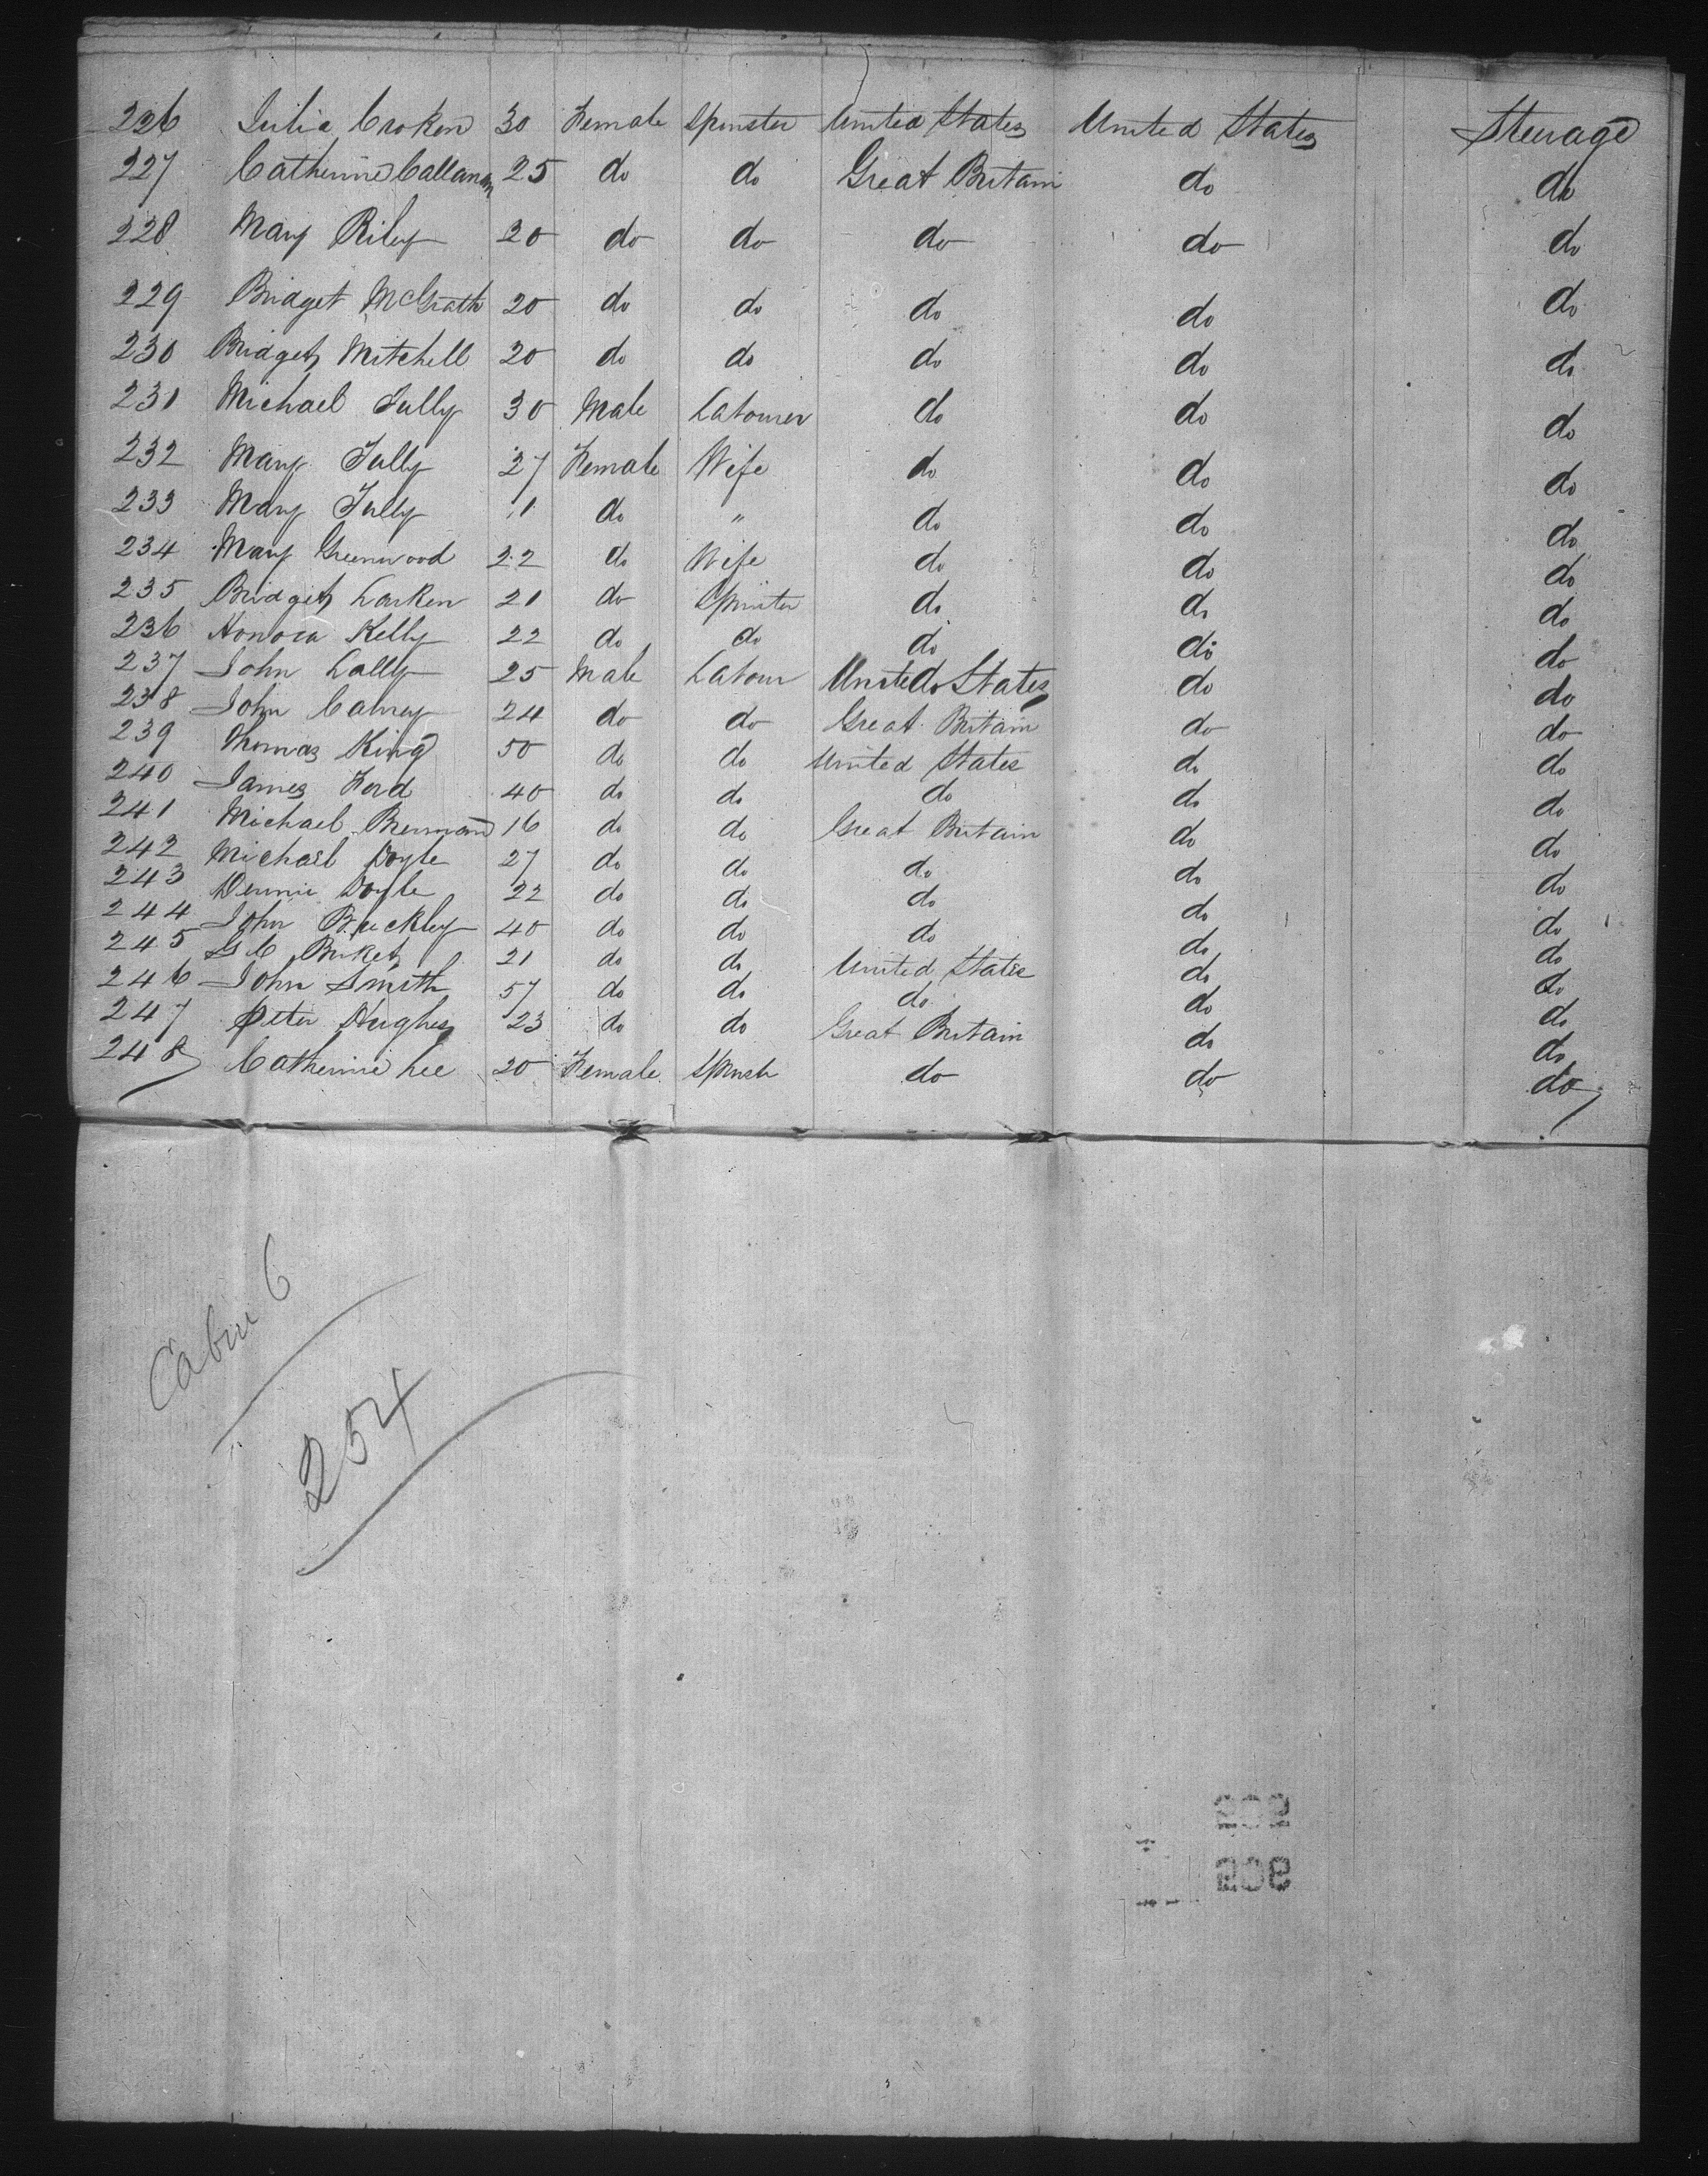 226 Julia Croken 30 Female Spinster United States United States Steerage
227 Catherine Callanan 25 do do Great Britain do do
228 Mary Riley 20 do do do do do
229 Bridget McGrath 20 do do do do do
230 Bridget Mitchell 20 do do do do do
231 Michael Tully 30 Male Labourer do do do
232 Mary Tully 27 Female Wife do do do
233 Mary Tully 11 do " do do do
234 Mary Greenwood 22 do Wife do do do
235 Bridget Larken 21 do Spinster do do do
236 Honora Kelly 22 do do do do do
237 John Lally 25 Male Labour United States do do
238 John 24 do do Great Britain do do
239 Thomas King 50 do do United States do do
240 James Ford 40 do do do do do
241 Michael 16 do do Great Britain do do
242 Michael Doyle 27 do do do do do
243 Dennis Doyle 22 do do do do do
244 John Buckley 40 do do do do do
245 21 do do United States do do
246 John Smith 57 do do do do do
247 Peter Hughes 23 do do Great Britain do do
248 Catherine Lee 20 Female Spinster do do do
Cabin 6
254